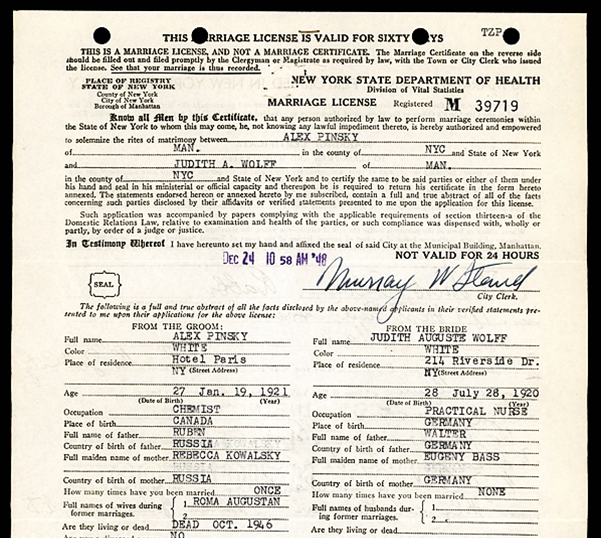 THIS MARRIAGE LICENSE IS VALID FOR SIXTY DAYS
TZP
THIS IS A MARRIAGE LICENSE, AND NOT A MARRIAGE CERTIFICATE. The Marriage Certificate on the reverse side
should be filled out and filed promptly by the Clergyman or Magistrate as required by law, with the Town or City Clerk who issued
the license. See that your marriage is thus recorded.
PLACE OF REGISTRY
STATE OF NEW YORK
County of New York
City of New York
Borough of Manhattan
NEW YORK STATE DEPARTMENT OF HEALTH
Division of Vital Statistics
MARRIAGE LICENSE Registered M 39719
Know all Men by this Certificate, that any person authorized by law to perform marriage ceremonies within
the State of New York to whom this may come, he, not knowing any lawful impediment thereto, is hereby authorized and empowered
to solemnize the rites of matrimony between ALEX PINSKY
of MAN. in the county of NYC and State of New York
and JUDITH A. WOLFF of MAN.
in the county of NYC and State of New York and to certify the same to be said parties or either of them under
his hand and seal in his ministerial or official capacity and thereupon he is required to return his certificate in the form hereto
annexed. The statements endorsed hereon or annexed hereto by me subscribed, contain a full and true abstract of all of the facts
concerning such parties disclosed by their affidavits or verified statements presented to me upon the application for this license.
Such application was accompanied by papers complying with the applicable requirements of section thirteen-a of the
Domestic Relations Law, relative to examination and health of the parties, or such compliance was dispensed with, wholly or
partly, by order of a judge or justice.
In Testimony Whereof I have hereunto set my hand and affixed the seal of said City at the Municipal Building, Manhattan.
DEC 24 10 58 AM '48
NOT VALID FOR 24 HOURS
SEAL
Murray W Stand
City Clerk.
The following is a full and true abstract of all the facts disclosed by the above-named applicants in their verified statements pre-
sented to me upon their applications for the above license:
FROM THE GROOM:
Full name ALEX PINSKY
Color WHITE
Place of residence Hotel Paris
NY (Street Address)
Age 27 Jan. 19, 1921
(Date of Birth) (Year)
Occupation CHEMIST
Place of birth CANADA
Full name of father RUBEN
Country of birth of father RUSSIA
Full maiden name of mother REBECCA KOWALSKY
Country of birth of mother RUSSIA
How many times have you been married ONCE
Full names of wives during former marriages. 1 ROMA AUGUSTAN
2
Are they living or dead DEAD OCT. 1946
NO
FROM THE BRIDE
Full name JUDITH AUGUSTE WOLFF
Color WHITE
Place of residence 214 Riverside Dr.
NY (Street Address)
Age 28 July 28, 1920
(Date of Birth) (Year)
Occupation PRACTICAL NURSE
Place of birth GERMANY
Full name of father WALTER
Country of birth of father GERMANY
Full maiden name of mother EUGENY BASS
Country of birth of mother GERMANY
How many times have you been married NONE
Full names of husbands during former marriages. 1
2
Are they living or dead